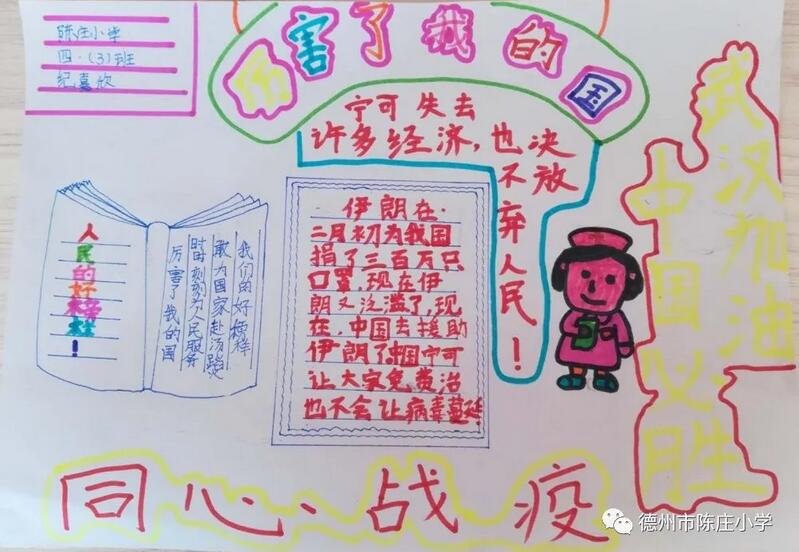 陈庄小学
四.(3)班
厉害了我的国
宁可失去
许多经济,也决
不放
弃
人
民
!
人民的好榜样!
我们的好榜样
敢为国家赴汤蹈
时时刻刻为人民服务
厉害了我的国
伊朗在.
二月初为我国
捐了三百万只
口罩,现在伊
朗又泛滥了,现
在,中国去援助
伊朗了.中国宁可
让大家免费治
也不会让病毒蔓延
武汉加油
中国必胜
同心、战疫
德州市陈庄小学